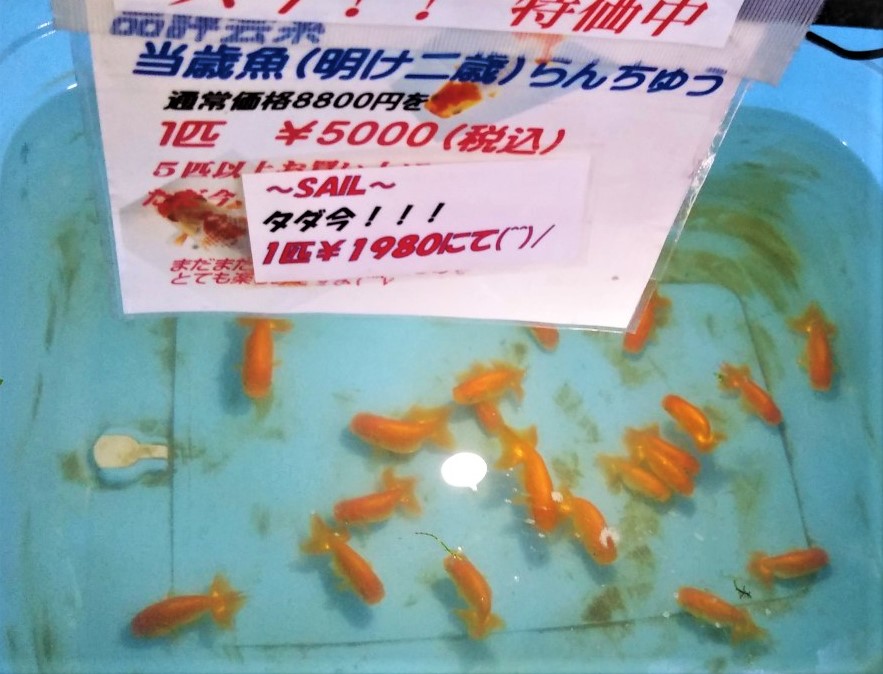 特価中
当歳魚(明け二歳)らんちゅう
通常価格8800円を
1匹 ¥5000(税込)
5匹以上お買い
ただ今
~SAIL~
タダ今!!!
1匹¥1980にて(^^)/
まだまだ
とても楽